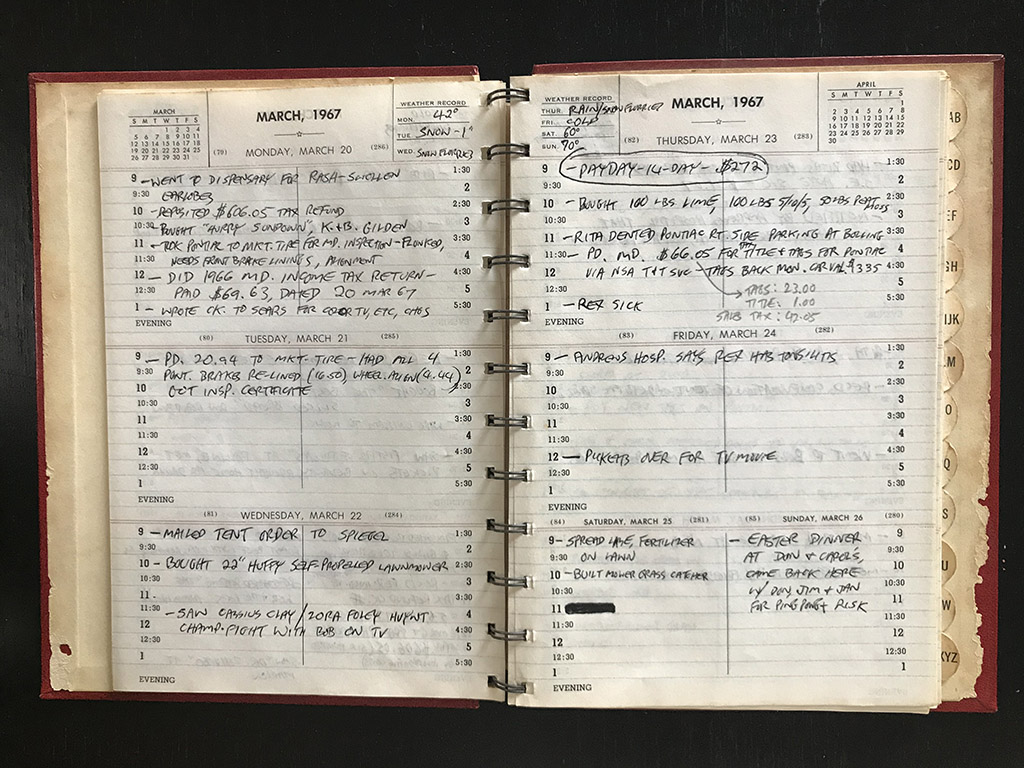 MARCH
S M T W T F S
1 2 3 4
5 6 7 8 9 10 11
12 13 14 15 16 17 18
19 20 21 22 23 24 25
26 27 28 29 30 31
MARCH, 1967
WEATHER RECORD
MON. 42°
TUE. SNOW-1"
WED. SNOW FLURRIES
(79) MONDAY, MARCH 20 (286)
9 - WENT TO DISPENSARY FOR RASH-SWOLLEN 1:30
9:30 EARLOBES 2
10 - DEPOSITED $606.05 TAX REFUND 2:30
10:30 - BOUGHT "HURRY SUNDOWN", K.+B. GILDEN 3
11 - TOOK PONTIAC TO MKT. TIRE FOR MD. INSPECTION-FLUNKED, 3:30
11:30 NEEDS FRONT BRAKE LININGS, ALIGNMENT 4
12 - DID 1966 MD. INCOME TAX RETURN- 4:30
12:30 PAID $69.63, DATED 20 MAR 67 5
1 - WROTE CK. TO SEARS FOR COLOR TV, ETC, CHGS 5:30
EVENING
(80) TUESDAY, MARCH 21 (285)
9 - PD. 20.94 TO MKT-TIRE-HAD ALL 4 1:30
9:30 PONT. BRAKE RE-LINED (16.50), WHEEL ALIGN (4.44) 2
10 GOT INSP. CERTIFICATE 2:30
10:30 3
11 3:30
11:30 4
12 4:30
12:30 5
1 5:30
EVENING
(81) WEDNESDAY, MARCH 22 (284)
9 - MAILED TENT ORDER TO SPIEGEL 1:30
9:30 2
10 - BOUGHT 22" HUFFY SELF-PROPELLED LAWNMOWER 2:30
10:30 3
11 3:30
11:30 - SAW CASSIUS CLAY/ZORA FOLEY HVYWT 4
12 CHAMP. FIGHT WITH BOB ON TV 4:30
12:30 5
1 5:30
EVENING
WEATHER RECORD
THUR. RAIN/SNOW FLURRIES
FRI. COLD
SAT. 60°
SUN. 70°
MARCH, 1967
APRIL
S M T W T F S
1
2 3 4 5 6 7 8
9 10 11 12 13 14 15
16 17 18 19 20 21 22
23 24 25 26 27 28 29
30
(82) THURSDAY, MARCH 23 (283)
9 - PAYDAY-14-DAY-$272 1:30
9:30 2
10 - BOUGHT 100 LBS LIME, 100 LBS 5/10/5, 50 LBS PEAT MOSS 2:30
10:30 3
11 - RITA DENTED PONTIAC RT. SIDE PARKING AT BOLLING 3:30
11:30 - PD. MD. $66.05 FOR TITLE + TAGS FOR PONTIAC 4
12 VIA NSA T+T SVC-TAGS BACK MON. CAR VAL $1335 4:30
12:30 TAGS: 23.00 5
1 - REX SICK TITLE: 1.00 5:30
EVENING SALES TAX: 42.05
(83) FRIDAY, MARCH 24 (282)
9 - ANDREWS HOSP. SAYS REX HAS TONSILITIS 1:30
9:30 2
10 2:30
10:30 3
11 3:30
11:30 4
12 - PICKETTS OVER FOR TV MOVIE 4:30
12:30 5
1 5:30
EVENING
(84) SATURDAY, MARCH 25 (281)
9 - SPREAD LIME, FERTILIZER
9:30 ON LAWN
10 - BUILT MOWER GRASS CATCHER
10:30
11
11:30
12
12:30
1
EVENING
(85) SUNDAY, MARCH 26 (280)
- EASTER DINNER 9
AT DON + CAROL'S, 9:30
CAME BACK HERE 10
W/ DON, JIM + JAN 10:30
FOR PING PONG + RISK 11
11:30
12
12:30
1
AB
CD
EF
GH
IJK
LM
O
Q
S
U
W
XYZ